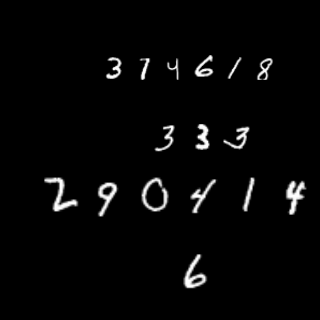 374618
333
290414
6